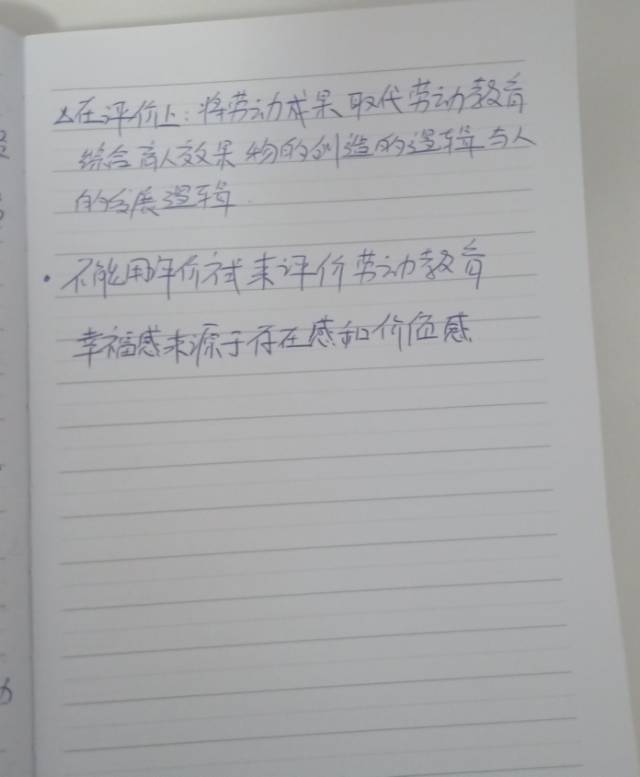 △在评价上:将劳动成果取代劳动教育
综合育人效果 物的创造的逻辑与人
的发展逻辑
·不能用评价式来评价劳动教育
幸福感来源于存在感和价值感